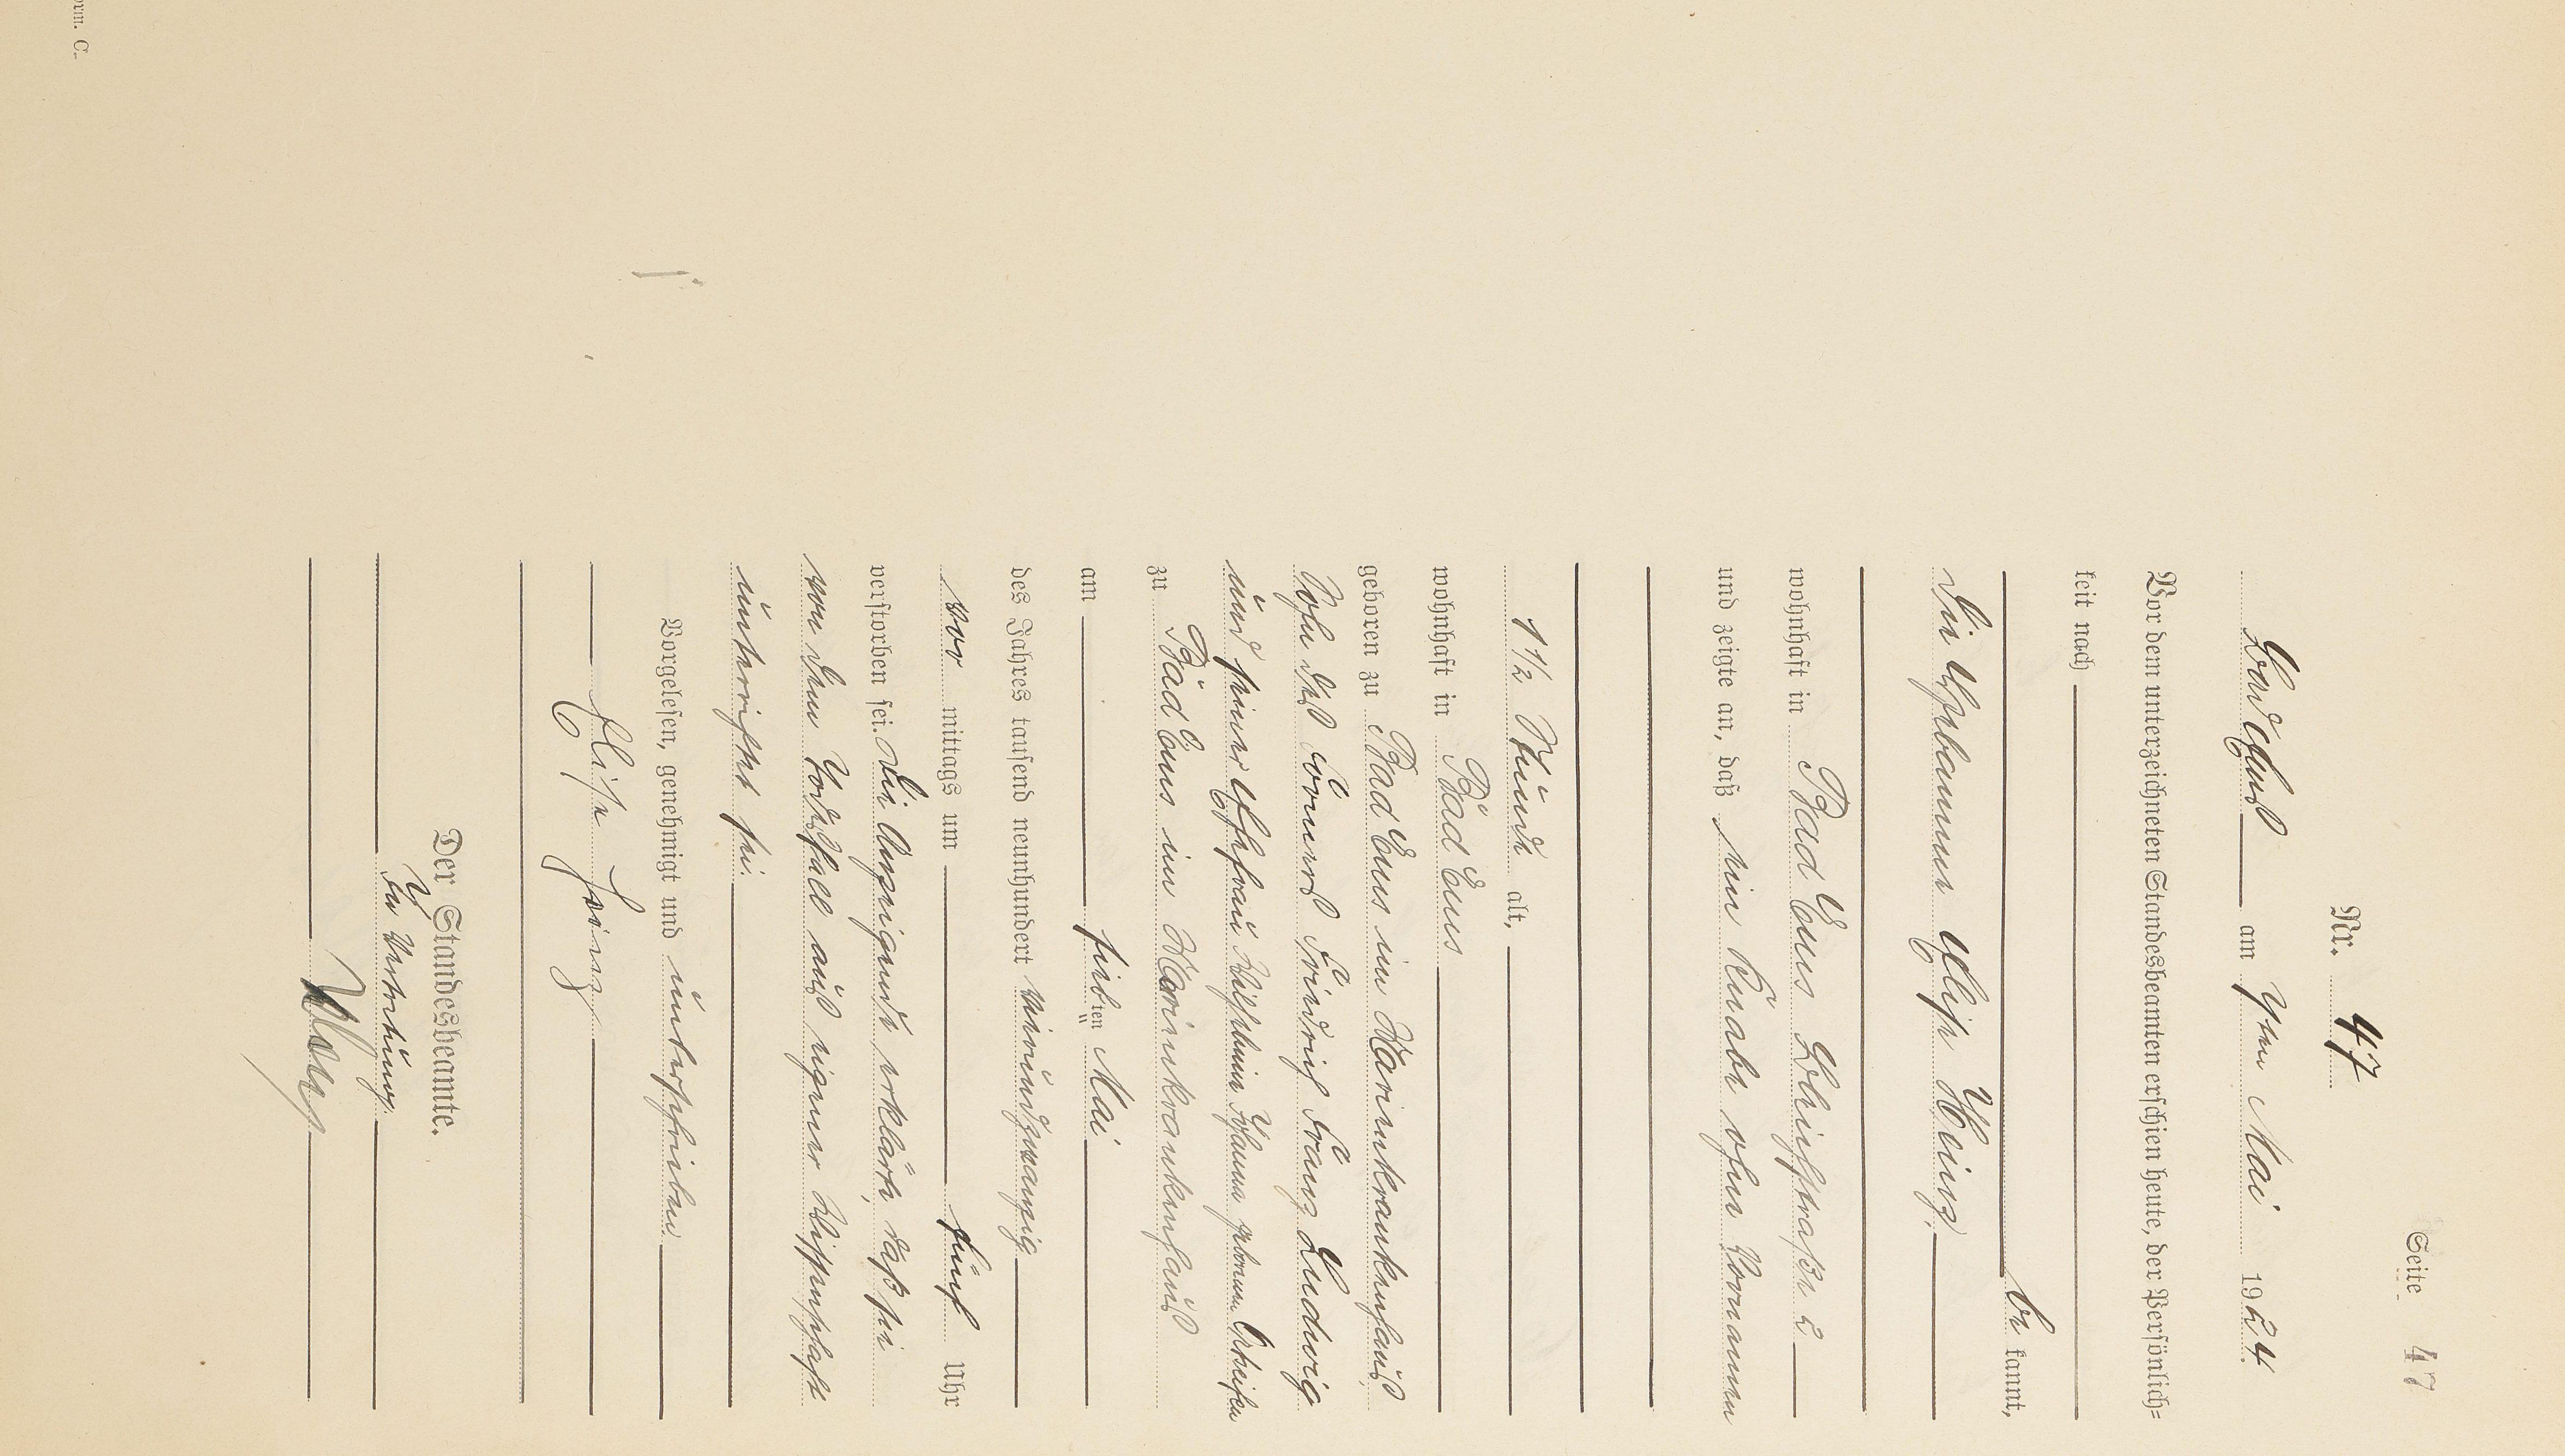 Seite 47
Nr. 47
Bad Ems am 7ten Mai 1924.
Vor dem unterzeichneten Standesbeamten erschien heute, der Persönlich=
keit nach
be kannt,
die Hebamme Elise Heinz,
wohnhaft in Bad Ems
und zeigte an, daß ein Knabe ohne Vornamen
1 1/2 Stunde alt,
wohnhaft in Bad Ems
geboren zu Bad Ems im Marienkrankenhaus
Sohn des Friedrich Franz Ludwig
und seiner Ehefrau Wilhelmine Johanna geborenen
zu Bad Ems im Marienkrankenhaus
am siebten Mai
des Jahres tausend neunhundert vierundzwanzig
vor mittags um fünf Uhr
verstorben sei. Die Anzeigende erklärte, daß sie
von dem Todesfall aus eigener Wissenschaft
unterrichtet sei.
Vorgelesen, genehmigt und unterschrieben
Elise Heinz
Der Standesbeamte.
In Vertretung
orm. C.